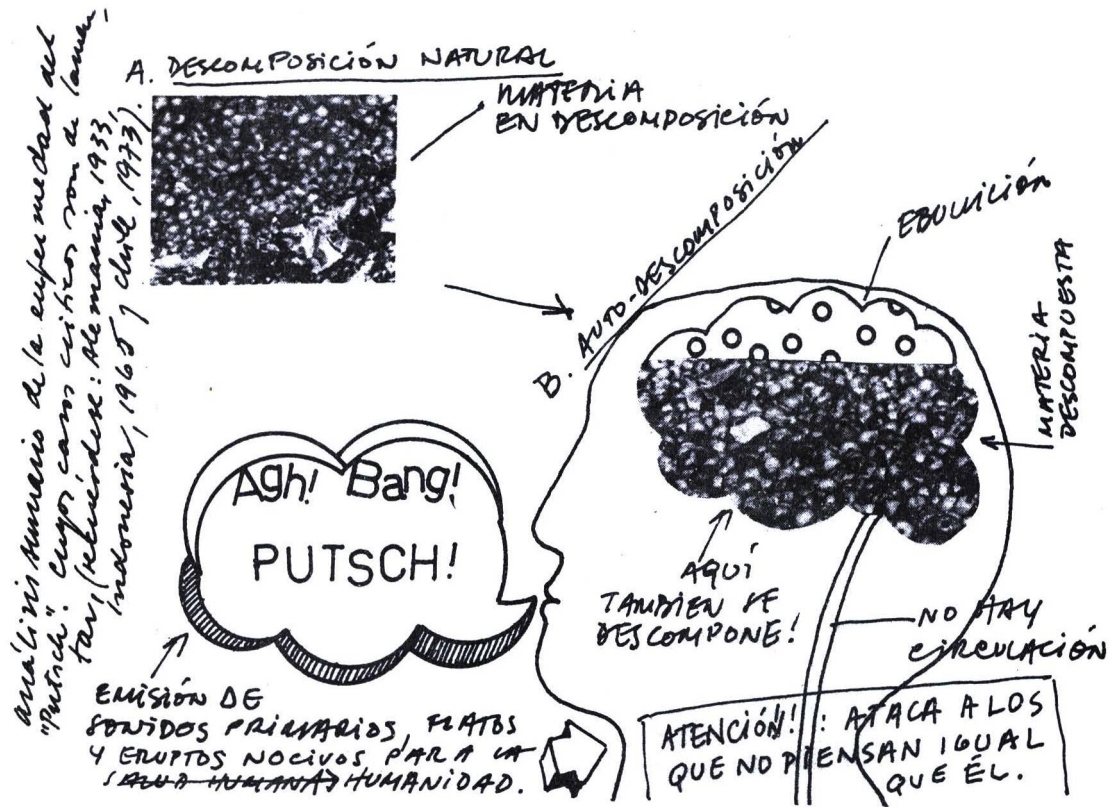 análisis sumario de la enfermedad del
"Putsch": cuyos casos críticos son de lamen,
tar, (recuérdese: Alemania, 1933,
Indonesia, 1965 y Chile, 1973).
A. DESCOMPOSICIÓN NATURAL
MATERIA
EN DESCOMPOSICIÓN
B. AUTO-DESCOMPOSICIÓN
EBULLICIÓN
MATERIA
DESCOMPUESTA
Agh! Bang!
PUTSCH!
AQUÍ
TAMBIEN SE
DESCOMPONE!
NO HAY
CIRCULACIÓN
EMISIÓN DE
SONIDOS PRIMARIOS, FLATOS
Y ERUPTOS NOCIVOS PARA LA
SALUD HUMANA) HUMANIDAD.
ATENCIÓN! : ATACA A LOS
QUE NO PIENSAN IGUAL
QUE ÉL.